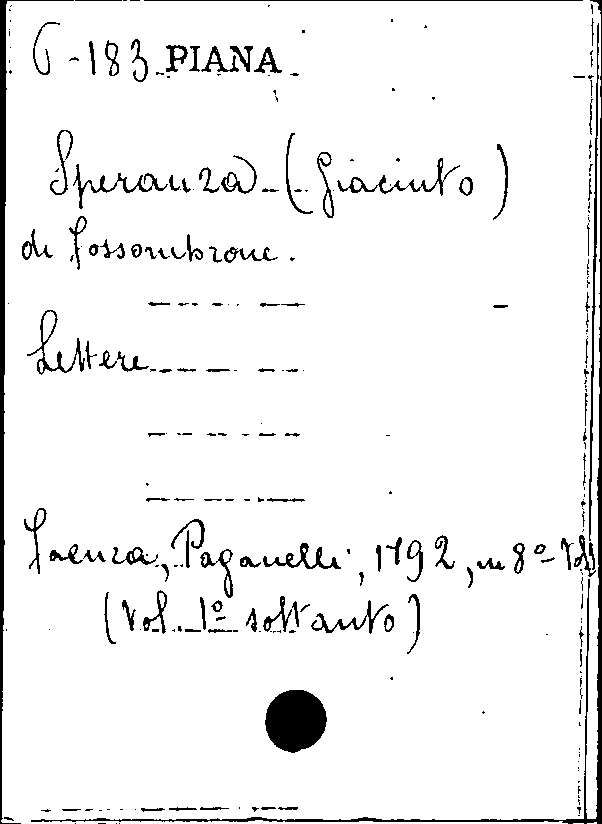 6-183 PIANA
Speranza (Giacinto)
di Fossombrone.
Lettere
Faenza, Paganelli, 1792, in 8º Vol
(Vol. 1º soltanto)